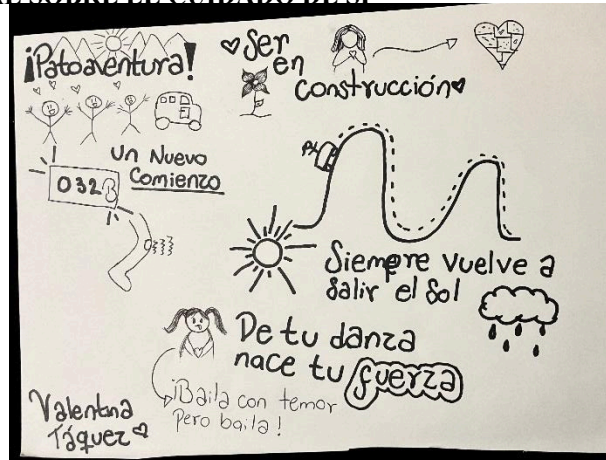 ¡Patoaventura!
♡Ser
en
Construcción♥
Un Nuevo
Comienzo
032B
Siempre vuelve a
Salir el Sol
De tu danza
nace tu fuerza
¡Baila con temor
Pero baila!
Valentina
Táquez♡